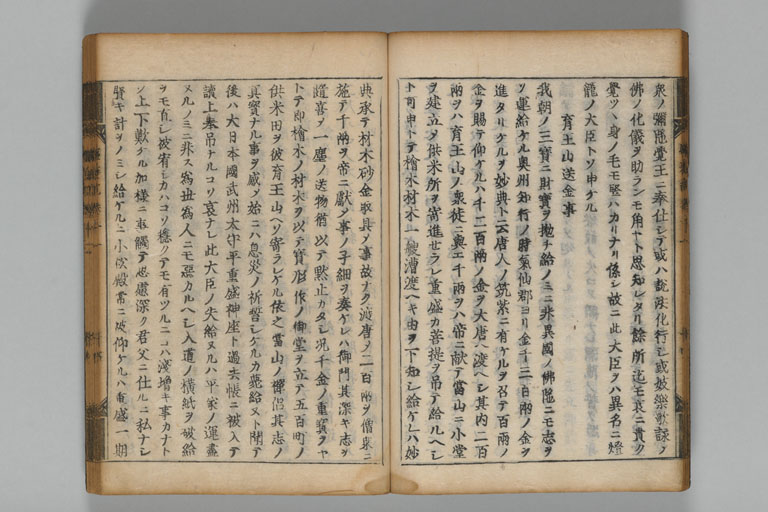 衆ノ彌陀覺王ニ奉仕シテ或ハ說法化行シ或妓樂歌詠ノ
佛ノ化儀ヲ助ランモ角ヤト思知レタリ餘所迄モ哀ニ貴ク
覺ツヽ身ノ毛モ竪ハカリナリ係シ故ニ此大臣ヲハ異名ニ燈
籠ノ大臣トソ申ケル
育王山送金事
我朝ノ三寶ニ財寶ヲ抛チ給ノミニ非異國ノ佛陀ニモ志ヲ
ソ運給ケル奥州知行ノ時氣仙郡ヨリ金千三百兩ノ金ヲ
進タリケルヲ妙典ト云唐人ノ筑紫ニ有ケルヲ召テ百兩ノ
金ヲ賜テ仰ケルハ千二百兩ノ金ヲ大唐ヘ渡ヘシ其内二百
兩ヲハ育王山ノ衆徒ニ與エ千兩ヲハ帝ニ献テ當山ニ小堂
ヲ建立シ供米所ヲ寄進せラレ重盛カ菩提ヲ吊テ給ルヘシ
ト可申トテ檜木材木一艘漕渡ヘキ由ヲ下知シ給ケレハ妙
典承テ材木砂金取具メ事故ナク渡唐メ二百兩ヲ僧衆ニ
施テ千兩ヲ帝ニ獻メ事ノ子細ヲ奏ケレハ御門其深キ志ヲ
隨喜メ一塵ノ送物猶以テ默止カタシ况千金ノ重寶ヲヤ
トテ即檜木ノ材木ヲ以テ寶形作ノ御堂ヲ立テ五百町ノ
供米田ヲ彼育王山ヘソ寄ラレケル依之當山ノ禪侶其志ノ
眞實ナル事ヲ感メ始ニハ息災ノ祈誓シケルカ薨給ヌト聞テ
後ハ大日本國武州太守平重盛神座ト過去帳ニ被入テ
讀上奉吊ナルコソ哀ナレ此大臣ノ失給ヌルハ平家ノ運盡
ヌルノミニ非ス爲世爲人ニモ惡カルヘシ入道ノ横紙ヲ破給
ヲモ直シ被宥シカハコソ穩クテモ有ツルニコハ淺增キ事カナト
ソ上下歎ケル加樣ニ事觸テ思慮深ク君父ニ仕ルニ私ナシ
賢キ計ヲノミシ給ケルニ小松殿常ニ被仰ケルハ重盛一期